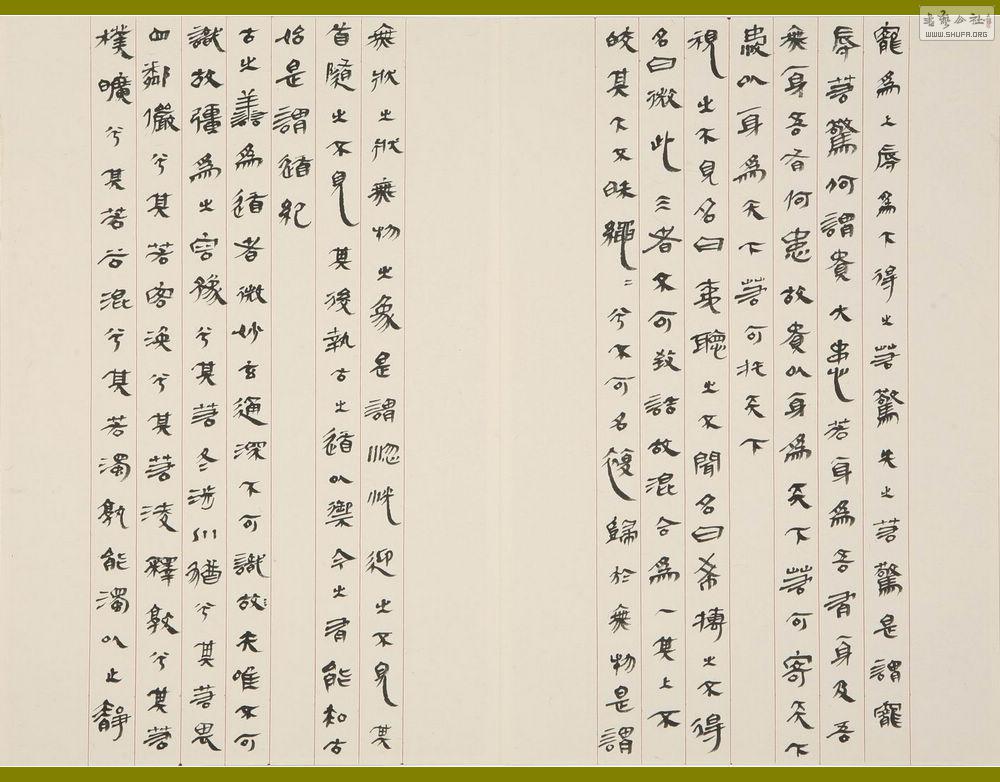 寵為上辱為下得之若驚失之若驚是謂寵
辱若驚何謂貴大患若身為吾有身及吾
無身吾有何患故貴以身為天下若可寄天下
愛以身為天下若可托天下
視之不見名曰夷聽之不聞名曰希摶之不得
名曰微此三者不可致詰故混合為一其上不
皎其下不昧繩〻兮不可名復歸於無物是謂
無狀之狀無物之象是謂惚恍迎之不見其
首隨之不見其後執古之道以禦今之有能知古
始是謂道紀
古之善為道者微妙玄通深不可識故夫唯不可
識故彊為之容豫兮其若冬涉川猶兮其若畏
四鄰儼兮其若客渙兮其若淩釋敦兮其若
樸曠兮其若谷混兮其若濁孰能濁以止靜
书艺公社
WWW.SHUFA.ORG